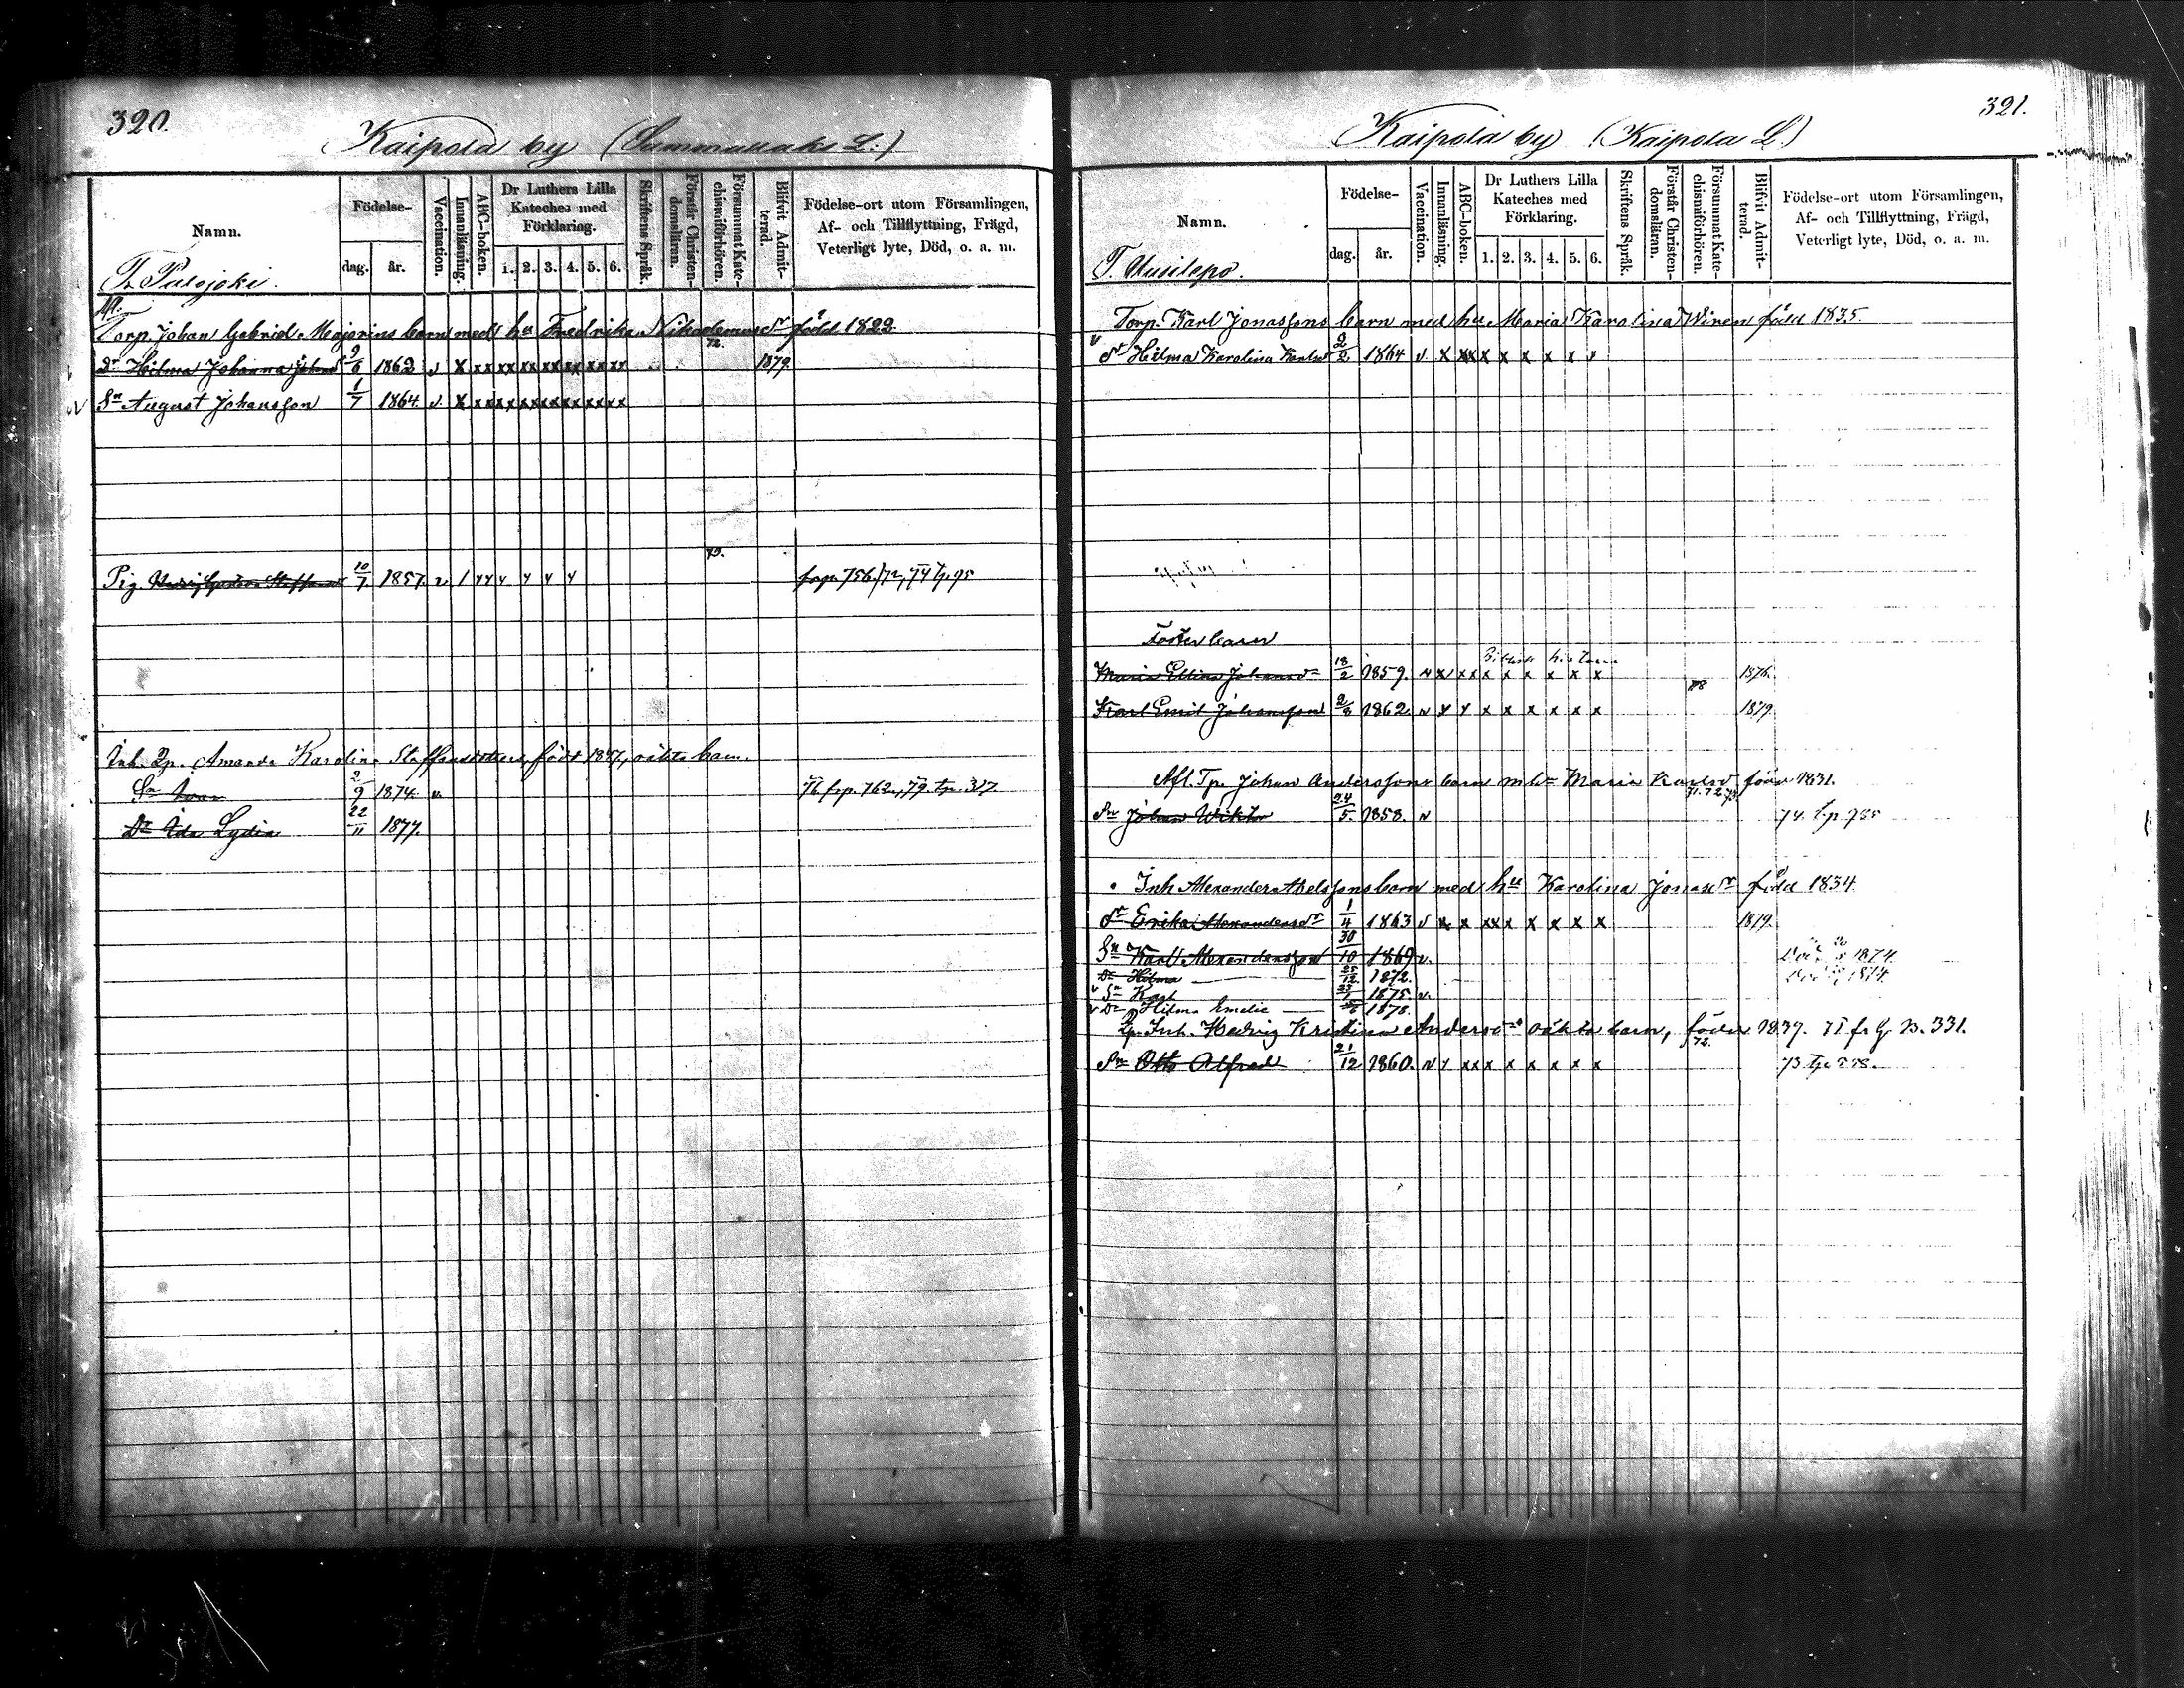 320.
Kaipola by (Sammunake L.)
Namn.
Födelse-
dag.
år.
Vaccination.
Innanläsning.
ABC-boken.
Dr Luthers Lilla Kateches med Förklaring.
1. 2. 3. 4. 5. 6.
Skriftens Språk.
Förstår Christen-domslären.
Försummat Kate-chismiförhören.
Blifvit Admit-terad.
Födelse-ort utom Församlingen, Af- och Tillflyttning, Frägd, Veterligt lyte, Död, o. a. m.
T. Palojoki.
Torp. Johan Gabriel Majorins barn med hu Fredrika Nikodemusdr född 1822.
72.
Dr Hilma Johanna Johansd 9/6 1862 v x xx xx xx xx xx xx xx 1879.
Sn August Johansson 1/7 1864. v x xx xx xx xx xx xx xx
73.
Pig. Staffansd 10/7. 1857. v 1 frp. 756/72, 74 tp. 95
Inh. Qp. Amanda Karolina Staffansdotters, född 1847, oäkta barn.
Sn Ivar 2/9 1874. v. 76 frp. 762., 79. tp. 317
Dr Ida Lydia 22/11 1877.
321.
Kaipola by (Kaipola L.)
Namn.
Födelse-
dag.
år.
Vaccination.
Innanläsning.
ABC-boken.
Dr Luthers Lilla Kateches med Förklaring.
1. 2. 3. 4. 5. 6.
Skriftens Språk.
Förstår Christen-domsläran.
Försummat Kate-chismiförhören.
Blifvit Admit-terad.
Födelse-ort utom Församlingen, Af- och Tillflyttning, Frägd, Veterligt lyte, Död, o. a. m.
T. Uusilepo.
Torp. Karl Jonassons barn med hu Maria Karolina Wiren född 1835.
v dr Hilma Karolina Karlsd 2/2 1864 v x xx x x x x x x
Fosterbarn
Maria Ellina Johansd 18/2 1859. v x xx x x x x x x 1876.
Karl Emil Johansson 2/8 1862. v x x x x x x x x 1879
Afl. Tp. Johan Anderssons barn m hu Maria Karlsd född 1831.
71. 72. 73.
Sn Johan Wiktor 24/5. 1858. v 74. tp. 735
Inh Alexander Abelssons barn med hu Karolina Jonasdr född 1834
dr Erika Alexandersdr 1/4 1863 v x x xx x x x x x 1879.
Sn Karl Alexandersson 30/10 1869 v. 1874.
Dr Hilma 25/12 1872. 1874.
v Sn Karl 1875. v.
v Dr Hilma Emelie 1878.
Qp. Inh. Hedvig Kristina Andersd oäkta barn, född 1837. 71 fr p. 331.
72.
Sn Otto Alfred 21/12 1860. v x xx x x x x x x 73 tp.